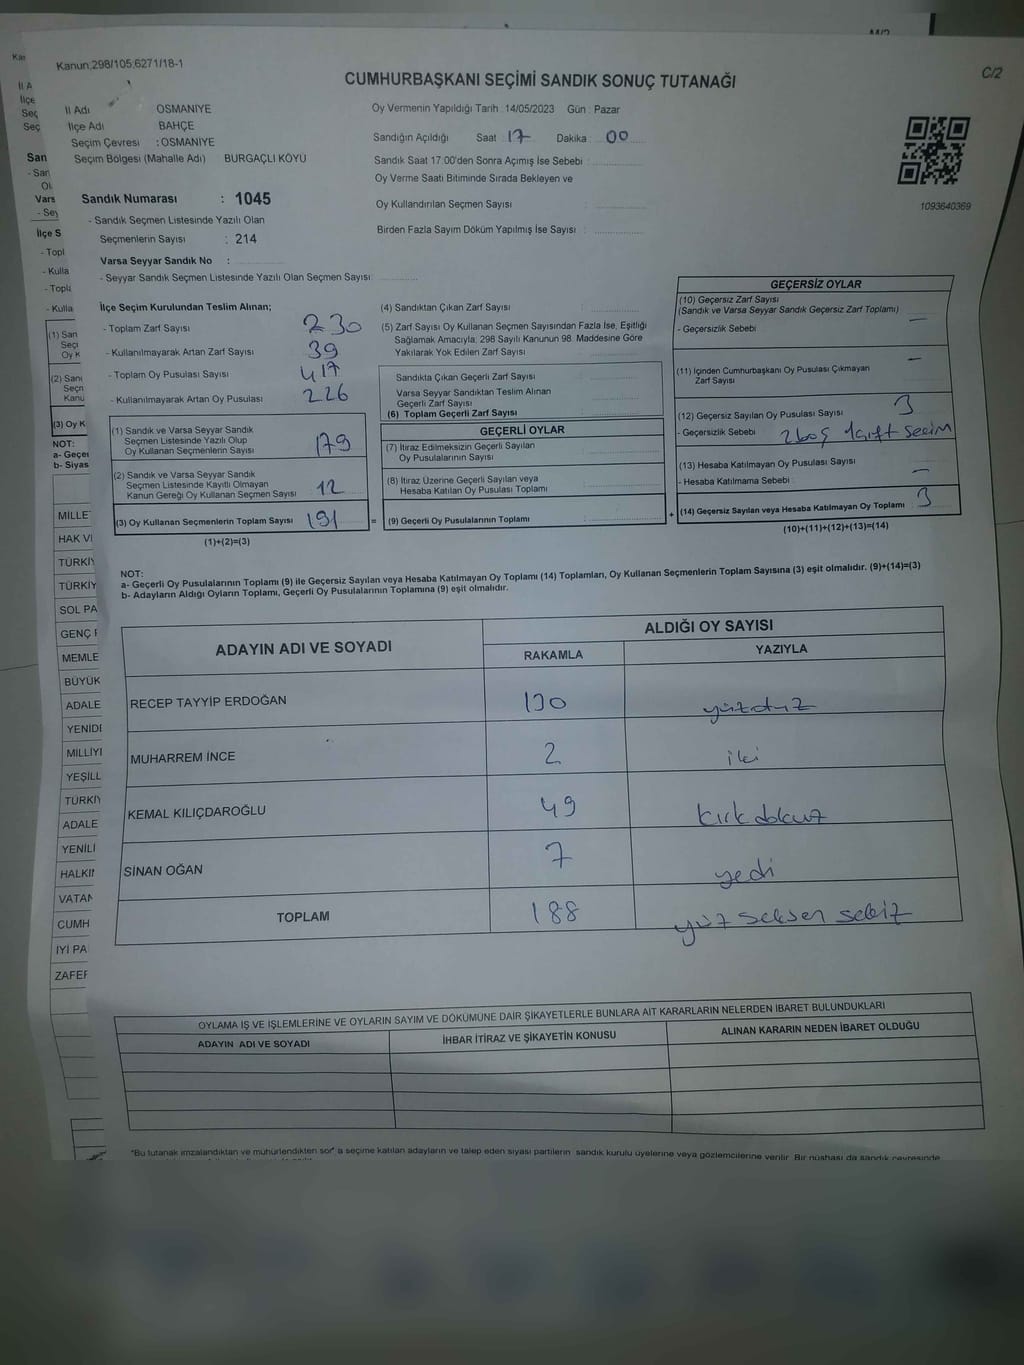 Kanun,298/105,6271/18-1
C/2
CUMHURBAŞKANI SEÇİMİ SANDIK SONUÇ TUTANAĞI
İl Adı OSMANİYE
İlçe Adı BAHÇE
Seçim Çevresi : OSMANİYE
Seçim Bölgesi (Mahalle Adı) BURGAÇLI KÖYÜ
Sandık Numarası : 1045
- Sandık Seçmen Listesinde Yazılı Olan
Seçmenlerin Sayısı : 214
Varsa Seyyar Sandık No :
- Seyyar Sandık Seçmen Listesinde Yazılı Olan Seçmen Sayısı:
Oy Vermenin Yapıldığı Tarih : 14/05/2023 Gün : Pazar
Sandığın Açıldığı Saat 17 Dakika : 00
Sandık Saat 17:00'den Sonra Açımış İse Sebebi :
Oy Verme Saati Bitiminde Sırada Bekleyen ve
Oy Kullandırılan Seçmen Sayısı :
Birden Fazla Sayım Döküm Yapılmış İse Sayısı :
1093640369
İlçe Seçim Kurulundan Teslim Alınan;
- Toplam Zarf Sayısı 230
- Kullanılmayarak Artan Zarf Sayısı 39
- Toplam Oy Pusulası Sayısı 417
- Kullanılmayarak Artan Oy Pusulası 226
(1) Sandık ve Varsa Seyyar Sandık
Seçmen Listesinde Yazılı Olup
Oy Kullanan Seçmenlerin Sayısı 179
(2) Sandık ve Varsa Seyyar Sandık
Seçmen Listesinde Kayıtlı Olmayan
Kanun Gereği Oy Kullanan Seçmen Sayısı 12
(3) Oy Kullanan Seçmenlerin Toplam Sayısı 191 =
(1)+(2)=(3)
(4) Sandıktan Çıkan Zarf Sayısı :
(5) Zarf Sayısı Oy Kullanan Seçmen Sayısından Fazla İse, Eşitliği
Sağlamak Amacıyla; 298 Sayılı Kanunun 98. Maddesine Göre
Yakılarak Yok Edilen Zarf Sayısı :
Sandıkta Çıkan Geçerli Zarf Sayısı :
Varsa Seyyar Sandıktan Teslim Alınan
Geçerli Zarf Sayısı :
(6) Toplam Geçerli Zarf Sayısı :
GEÇERLİ OYLAR
(7) İtiraz Edilmeksizin Geçerli Sayılan
Oy Pusulalarının Sayısı :
(8) İtiraz Üzerine Geçerli Sayılan veya
Hesaba Katılan Oy Pusulası Toplamı :
(9) Geçerli Oy Pusulalarının Toplamı : +
GEÇERSİZ OYLAR
(10) Geçersiz Zarf Sayısı
(Sandık ve Varsa Seyyar Sandık Geçersiz Zarf Toplamı) —
- Geçersizlik Sebebi :
(11) İçinden Cumhurbaşkanı Oy Pusulası Çıkmayan —
Zarf Sayısı :
(12) Geçersiz Sayılan Oy Pusulası Sayısı 3
- Geçersizlik Sebebi : 2 boş 1 çift seçim
(13) Hesaba Katılmayan Oy Pusulası Sayısı —
- Hesaba Katılmama Sebebi :
(14) Geçersiz Sayılan veya Hesaba Katılmayan Oy Toplamı : 3
(10)+(11)+(12)+(13)=(14)
NOT:
a- Geçerli Oy Pusulalarının Toplamı (9) ile Geçersiz Sayılan veya Hesaba Katılmayan Oy Toplamı (14) Toplamları, Oy Kullanan Seçmenlerin Toplam Sayısına (3) eşit olmalıdır. (9)+(14)=(3)
b- Adayların Aldığı Oyların Toplamı, Geçerli Oy Pusulalarının Toplamına (9) eşit olmalıdır.
ADAYIN ADI VE SOYADI ALDIĞI OY SAYISI
RAKAMLA YAZIYLA
RECEP TAYYİP ERDOĞAN 130 yüzotuz
MUHARREM İNCE 2 iki
KEMAL KILIÇDAROĞLU 49 kırk dokuz
SİNAN OĞAN 7 yedi
TOPLAM 188 yüz seksen sekiz
OYLAMA İŞ VE İŞLEMLERİNE VE OYLARIN SAYIM VE DÖKÜMÜNE DAİR ŞİKAYETLERLE BUNLARA AİT KARARLARIN NELERDEN İBARET BULUNDUKLARI
ADAYIN ADI VE SOYADI İHBAR İTİRAZ VE ŞİKAYETİN KONUSU ALINAN KARARIN NEDEN İBARET OLDUĞU
*Bu tutanak imzalandıktan ve mühürlendikten sonra seçime katılan adayların ve talep eden siyasi partilerin sandık kurulu üyelerine veya gözlemcilerine verilir. Bir nüshası da sandık çevresinde
MİLLET
HAK VE
TÜRKİY
TÜRKİY
SOL PA
GENÇ P
MEMLE
BÜYÜK
ADALE
YENİDE
MİLLİYE
YEŞİLL
TÜRKİY
ADALE
YENİLİ
HALKIN
VATAN
CUMH
İYİ PA
ZAFER